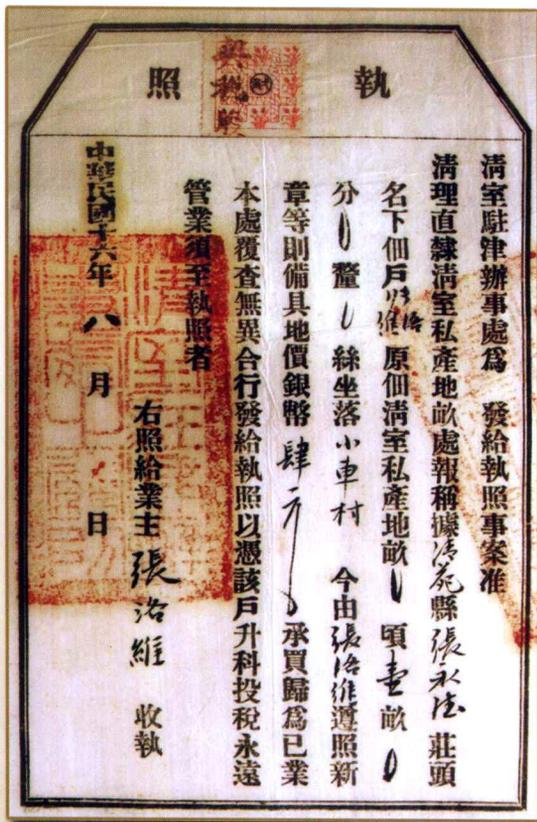 執照
清室駐津辦事處為　發給執照事案准
清理直隸清室私產地畝處報稱據清苑縣張永德莊頭
名下佃戶張洛維原佃清室私產地畝〇頃壹畝〇
分〇釐〇絲坐落小車村　今由張洛維遵照新
章等則備具地價銀幣肆元〇承買歸為已業
本處覆查無異合行發給執照以憑該戶升科投稅永遠
管業須至執照者
右照給業主張洛維　收執
中華民國十六年八月　日